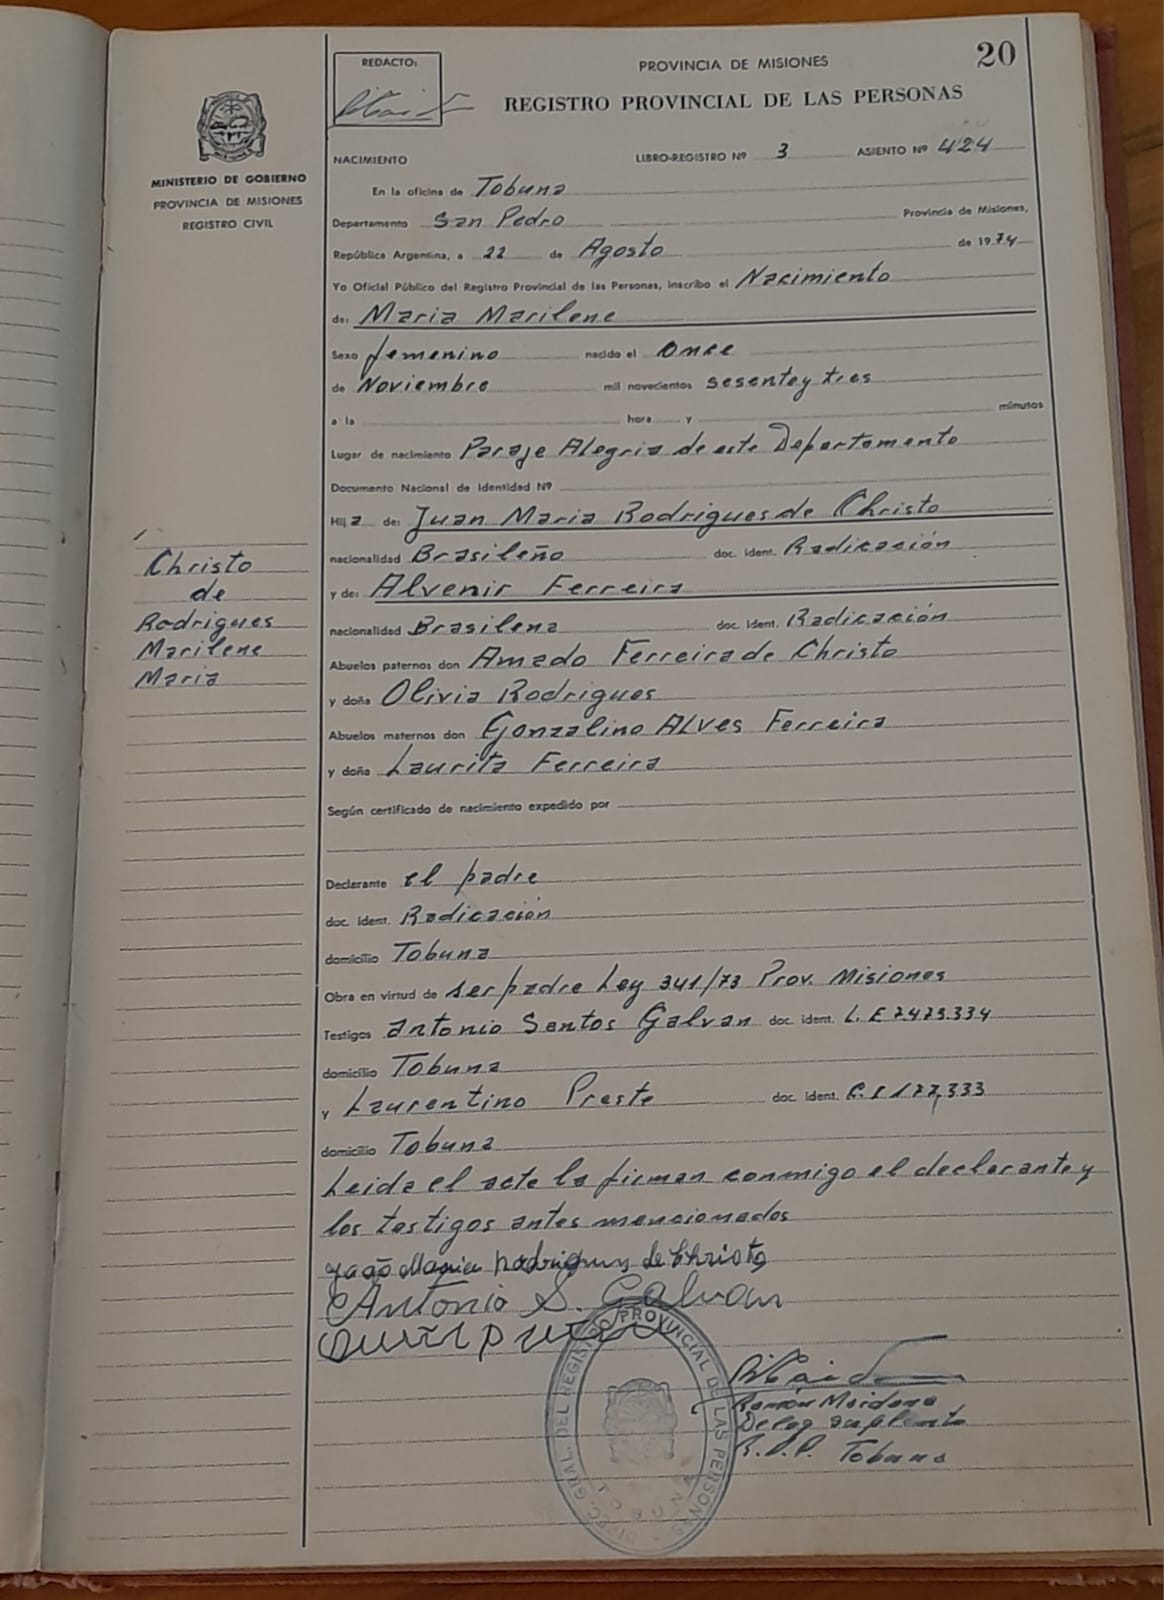 20
REDACTO:
PROVINCIA DE MISIONES
REGISTRO PROVINCIAL DE LAS PERSONAS
MINISTERIO DE GOBIERNO
PROVINCIA DE MISIONES
REGISTRO CIVIL
NACIMIENTO LIBRO-REGISTRO Nº 3 ASIENTO Nº 424
En la oficina de Tobuna
Departamento San Pedro Provincia de Misiones,
República Argentina, a 22 de Agosto de 1974
Yo Oficial Público del Registro Provincial de las Personas, inscribo el Nacimiento
de: Maria Marilene
Sexo femenino nacido el Once
de Noviembre mil novecientos sesenta y tres
a la hora y minutos
Lugar de nacimiento Paraje Alegria de este Departamento
Documento Nacional de Identidad Nº
Hija de: Juan Maria Rodrigues de Christo
nacionalidad Brasileño doc. ident. Radicación
y de: Alvenir Ferreira
nacionalidad Brasilena doc. ident. Radicación
Abuelos paternos don Amado Ferreira de Christo
y doña Olivia Rodrigues
Abuelos maternos don Gonzalino ALVes Ferreira
y doña Laurita Ferreira
Christo
de
Rodrigues
Marilene
Maria
Según certificado de nacimiento expedido por
Declarante el padre
doc. ident. Radicación
domicilio Tobuna
Obra en virtud de ser padre Ley 341/73 Prov. Misiones
Testigos Antonio Santos Galvan doc. ident. L.E 7.475.334
domicilio Tobuna
y Laurentino Preste doc. ident. C.I 177,333
domicilio Tobuna
Leida el acta la firman conmigo el declarante y
los testigos antes mencionados
João Maria Rodrigues de Christo
Antonio S. Galvan
Ramón Maidana
Deleg suplente
R.D.P. Tobuna
DIREC. GRAL. DEL REGISTRO PROVINCIAL DE LAS PERSONAS
TOBUNA